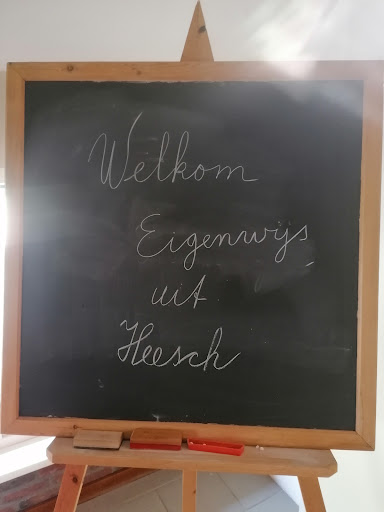 Welkom
Eigenwijs
uit
Heesch